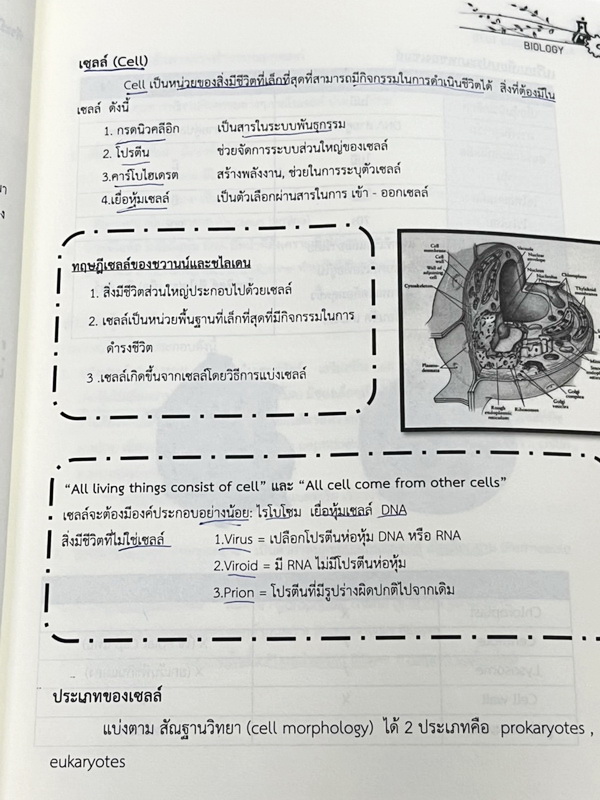 BIOLOGY
เซลล์ (Cell)
Cell เป็นหน่วยของสิ่งมีชีวิตที่เล็กที่สุดที่สามารถมีกิจกรรมในการดำเนินชีวิตได้ สิ่งที่ต้องมีใน
เซลล์ ดังนี้
1. กรดนิวคลีอิก เป็นสารในระบบพันธุกรรม
2. โปรตีน ช่วยจัดการระบบส่วนใหญ่ของเซลล์
3.คาร์โบไฮเดรต สร้างพลังงาน, ช่วยในการระบุตัวเซลล์
4.เยื่อหุ้มเซลล์ เป็นตัวเลือกผ่านสารในการ เข้า - ออกเซลล์
ทฤษฎีเซลล์ของชวานน์และชไลเดน
1. สิ่งมีชีวิตส่วนใหญ่ประกอบไปด้วยเซลล์
2. เซลล์เป็นหน่วยพื้นฐานที่เล็กที่สุดที่มีกิจกรรมในการ
ดำรงชีวิต
3 .เซลล์เกิดขึ้นจากเซลล์โดยวิธีการแบ่งเซลล์
Cell membrane
Cell wall
Wall of adjoining cell
Cytoskeleton
Vacuole
Nuclear
Nucleus
Nucleolus
Chloroplasts
Thylakoid
Golgi complex
Golgi vesicles
Ribosomes
Rough endoplasmic reticulum
Plasmodesmata
"All living things consist of cell" และ "All cell come from other cells"
เซลล์จะต้องมีองค์ประกอบอย่างน้อย: ไรโบโซม เยื่อหุ้มเซลล์ DNA
สิ่งมีชีวิตที่ไม่ใช่เซลล์ 1.Virus = เปลือกโปรตีนห่อหุ้ม DNA หรือ RNA
2.Viroid = มี RNA ไม่มีโปรตีนห่อหุ้ม
3.Prion = โปรตีนที่มีรูปร่างผิดปกติไปจากเดิม
ประเภทของเซลล์
แบ่งตาม สัณฐานวิทยา (cell morphology) ได้ 2 ประเภทคือ prokaryotes ,
eukaryotes